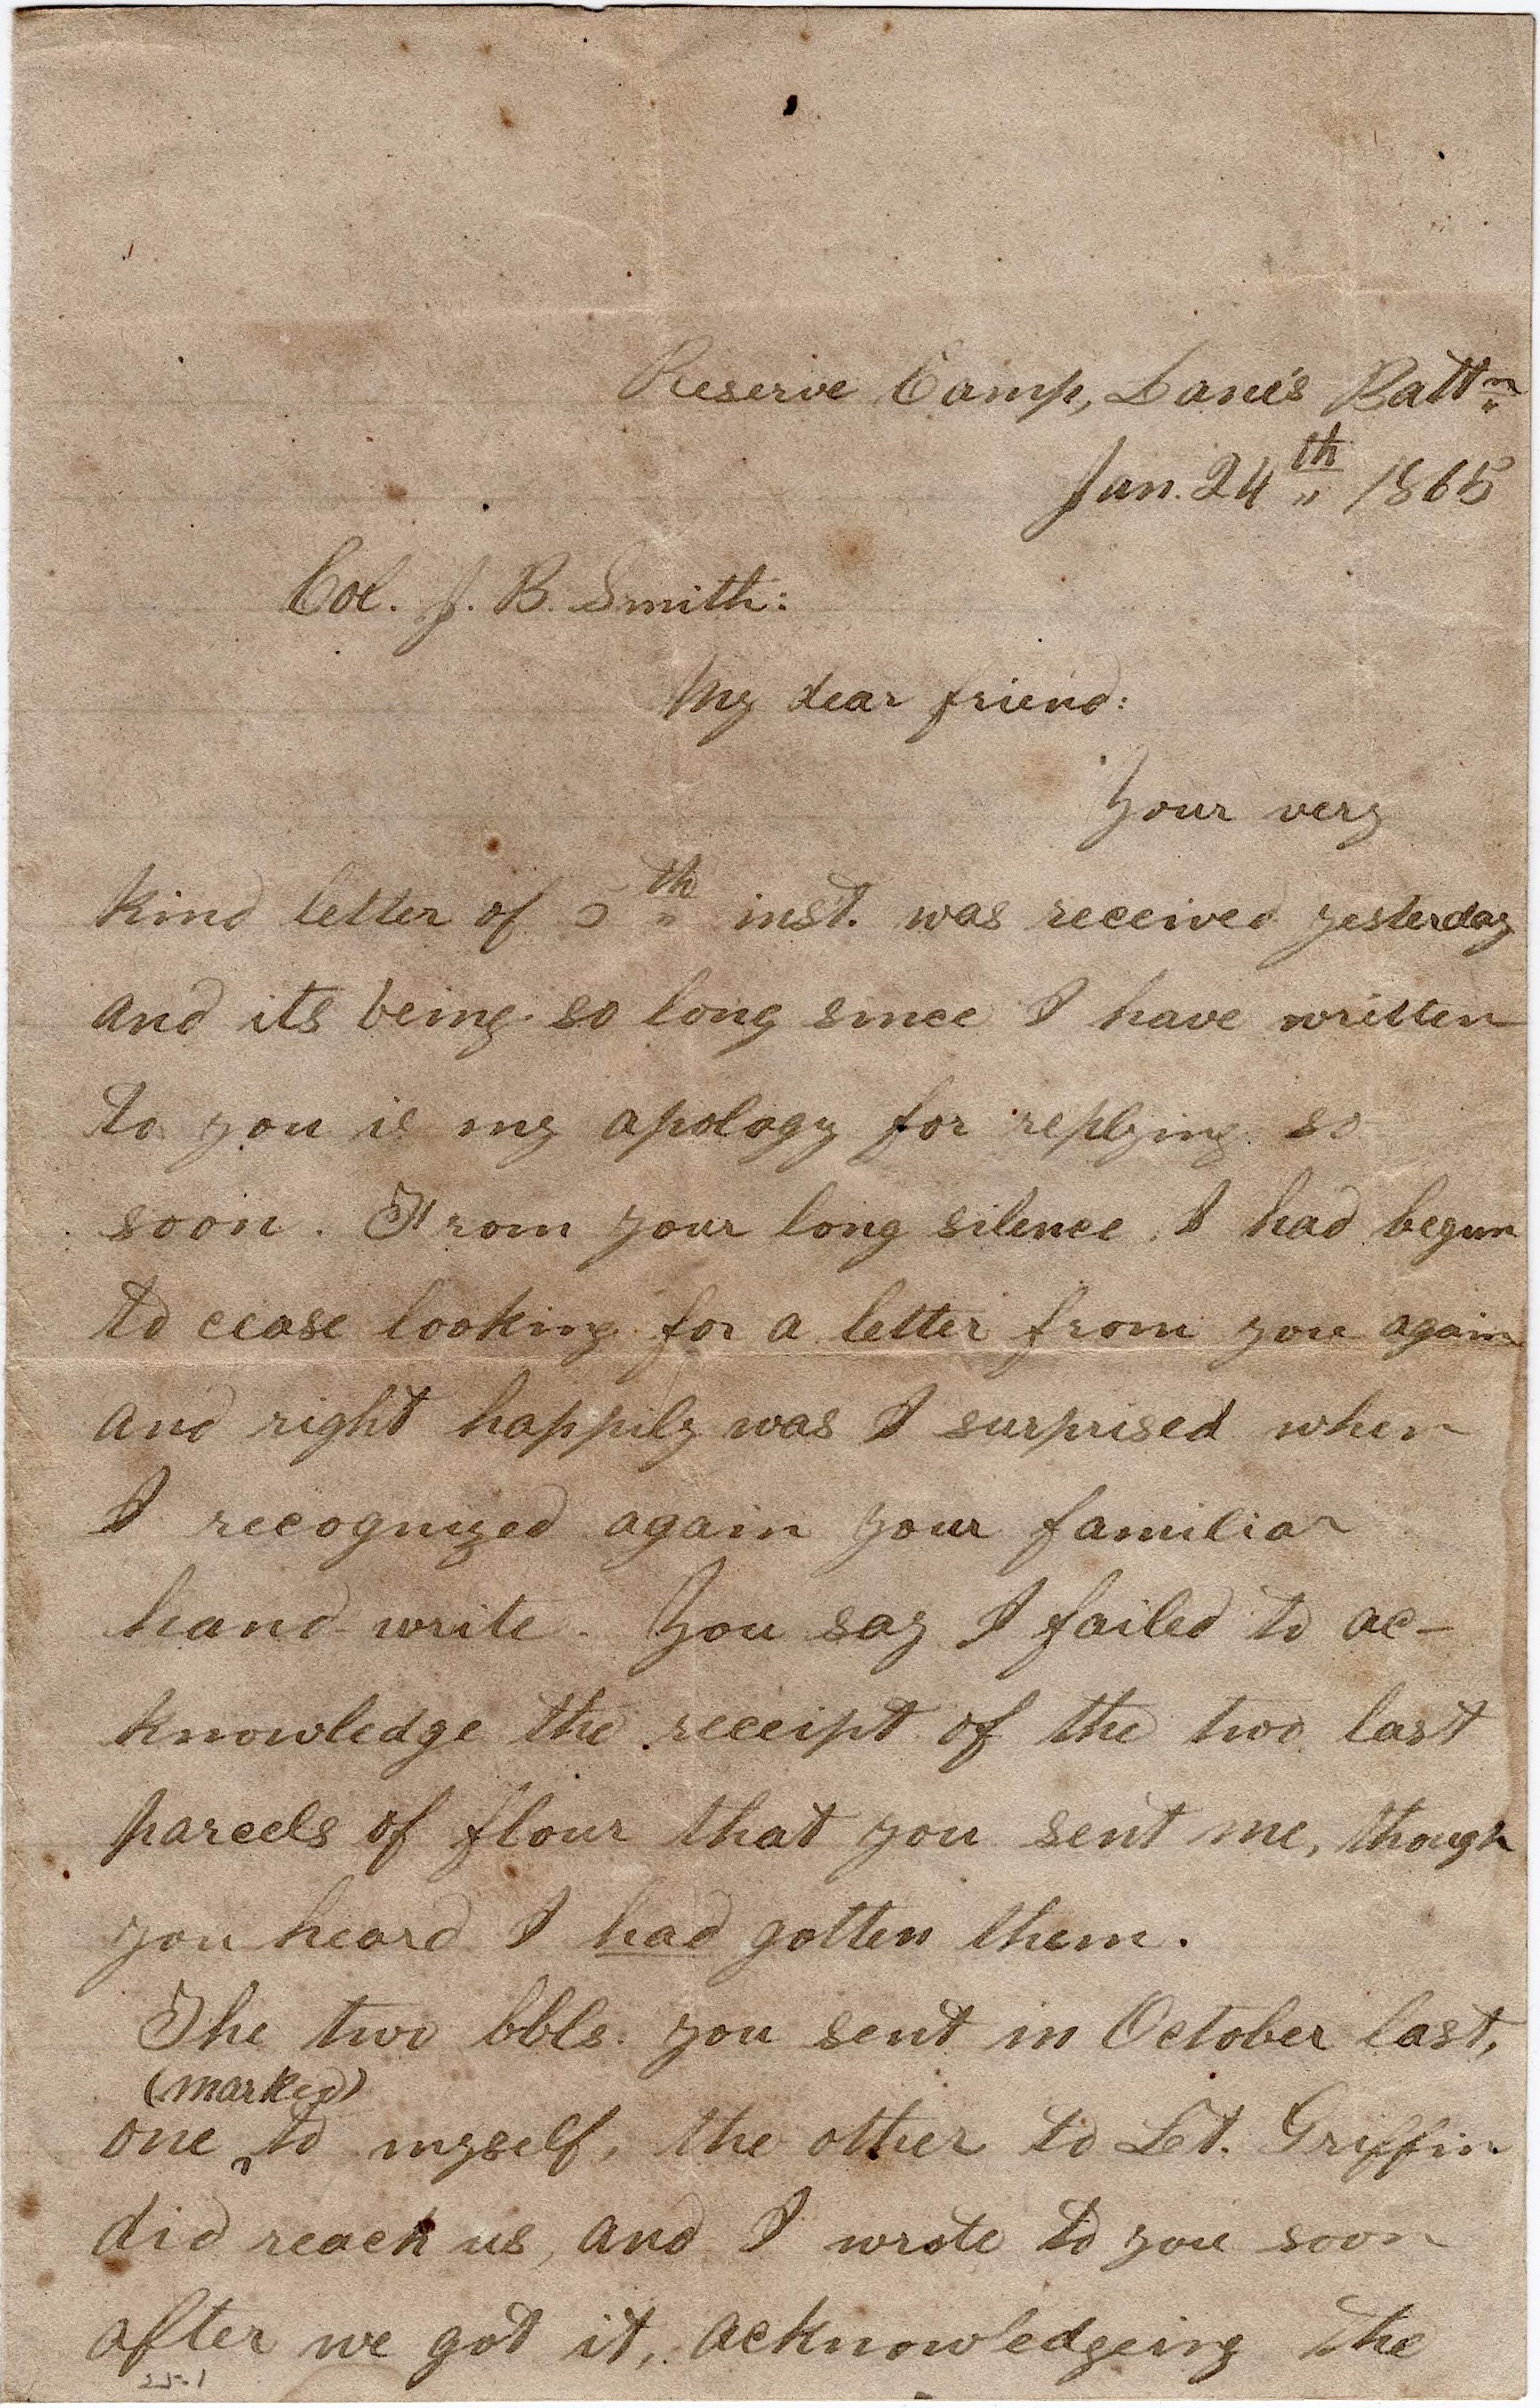 Reserve Camp, Lane's Batt<sup>n</sup>
Jan. 24<sup>th</sup> 1865
Col. J. B. Smith:
My dear friend:
Your very
kind letter of 5<sup>th</sup> inst. was received yesterday
and its being so long since I have written
to you is my apology for replying so
soon. From your long silence, I had begun
to cease looking for a letter from you again
and right happily was I surprised when
I recognized again your familiar
hand-write. You say I failed to ac-
knowledge the receipt of the two last
parcels of flour that you sent me, though
you heard I had gotten them.
The two bbls. you sent in October last,
(marked)
one ‸ to myself, the other to Lt. Griffin
did reach us, and I wrote to you soon
after we got it, acknowledgeing the